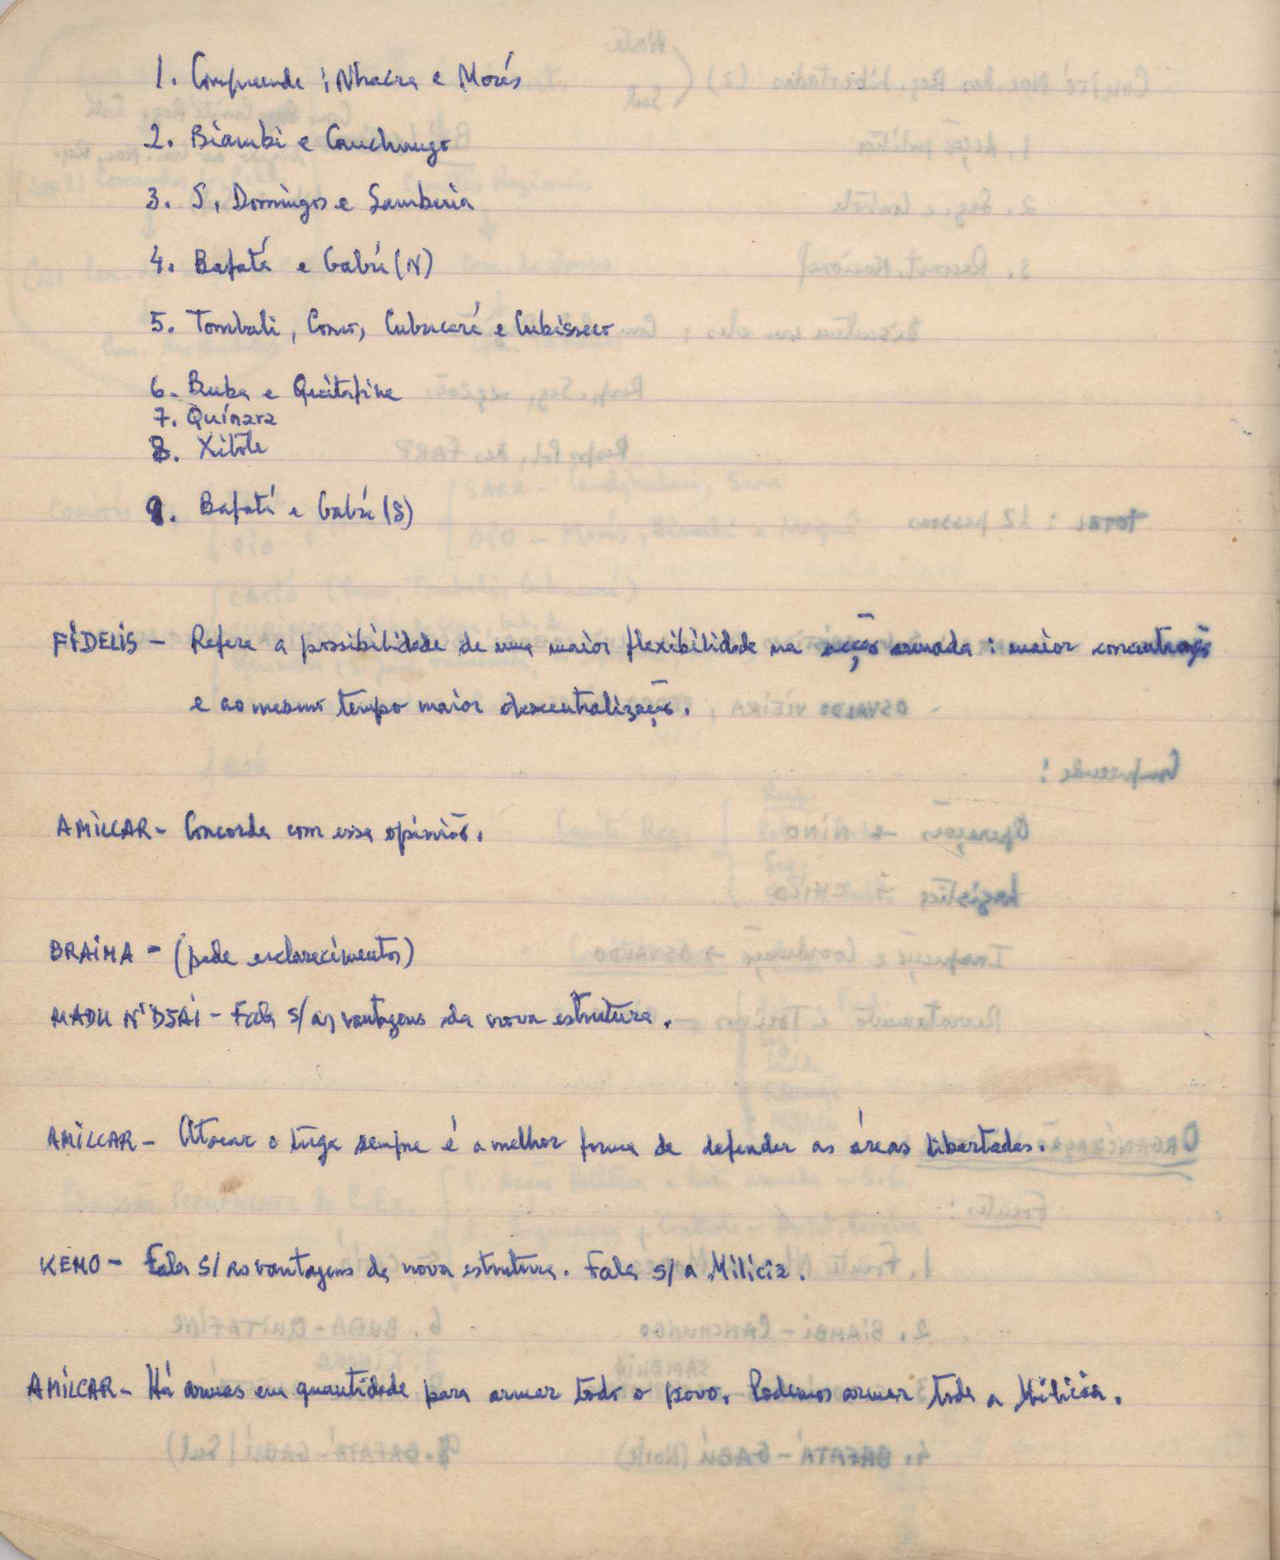 1. Compreende: Nhacra e Morés
2. Biambi e Canchungo
3. S. Domingos e Sambuia
4. Bafatá e Gabú (N)
5. Tombali, Como, Cubucaré e Cubisseco
6. Buba e Quitafine
7. Quinara
8. Xitole
9. Bafatá e Gabú (S)
FIDELIS – Refere a possibilidade de uma maior flexibilidade na acção armada: maior concentração
e ao mesmo tempo maior descentralização.
AMILCAR – Concorda com essa opinião.
BRAIMA – (pede esclarecimentos)
MADU N'DJAI – Fala s/ as vantagens da nova estrutura.
AMILCAR – Atacar o tuga sempre é a melhor forma de defender as áreas libertadas.
KEMO – Fala s/ as vantagens da nova estrutura. Fala s/ a Milícia.
AMILCAR – Há armas em quantidade para armar todo o povo. Podemos armar toda a Milícia.